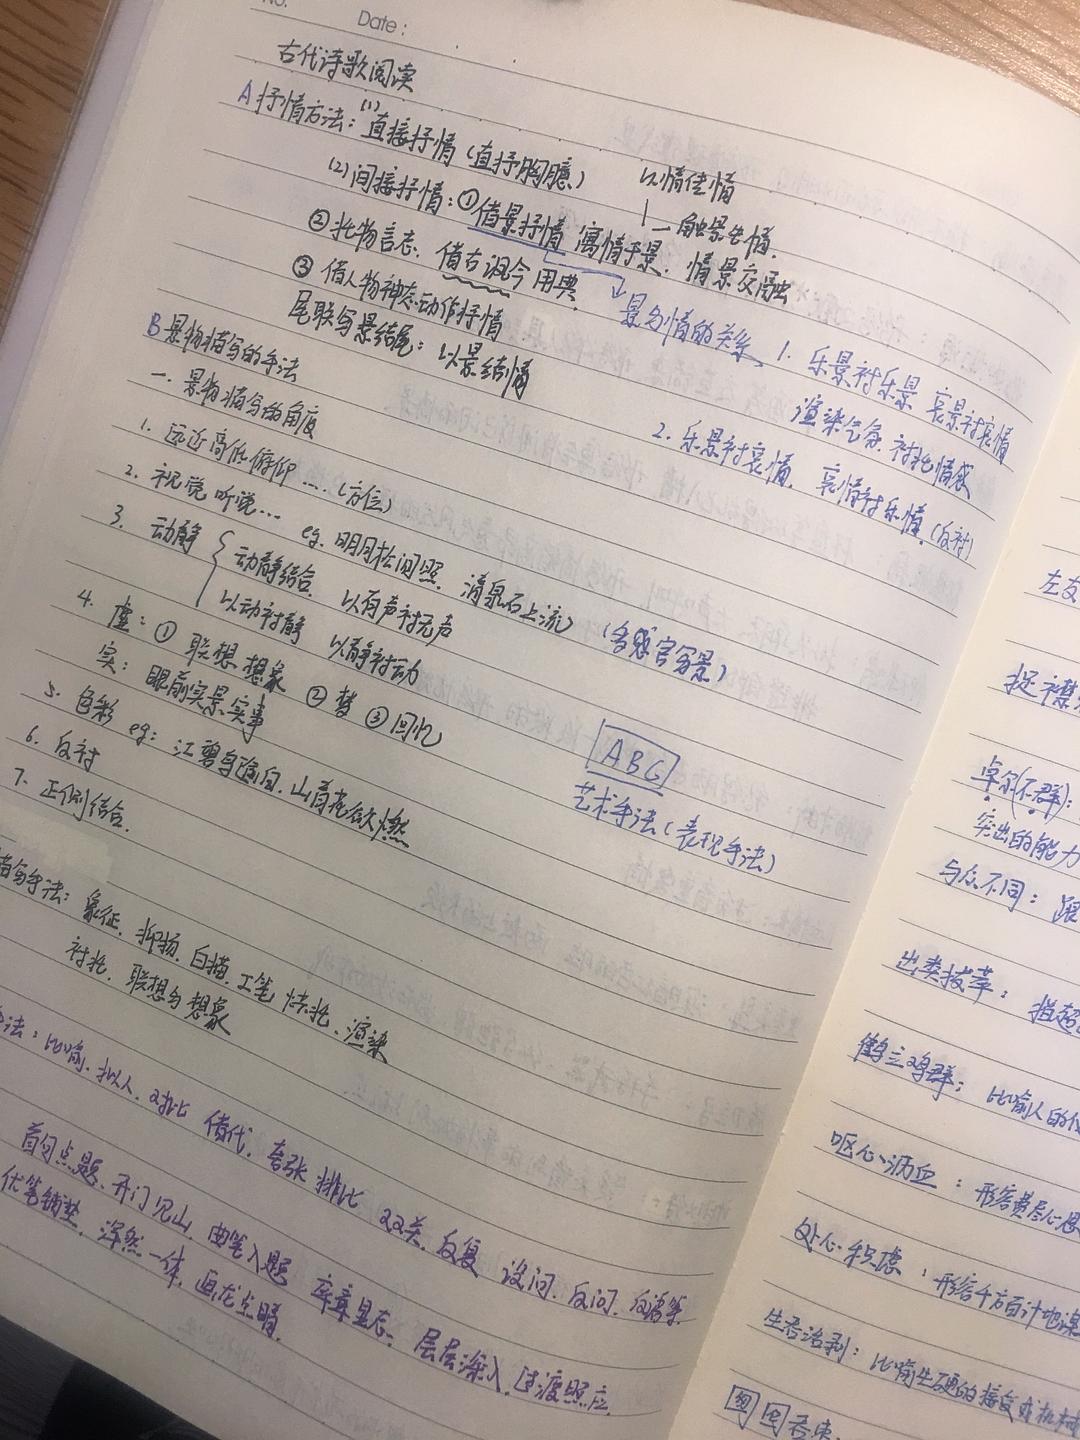 No.
Date:
古代诗歌阅读
A 抒情方法: (1) 直接抒情 (直抒胸臆)
(2) 间接抒情: ① 借景抒情 寓情于景. 情景交融
以情佳情
一 触景生情.
② 托物言志. 借古讽今 用典
③ 借人物神态动作抒情
尾联写景结尾: 以景结情
景与情的关系 1. 乐景衬乐景 哀景衬哀情
渲染气氛. 衬托情感
2. 乐景衬哀情. 哀情衬乐情. (反衬)
B 景物描写的手法
一. 景物描写的角度
1. 远近高低俯仰 .... (方位)
2. 视觉 听觉... eg. 明月松间照. 清泉石上流 (多感官写景)
3. 动静 { 动静结合. 以有声衬无声
以动衬静 以静衬动
4. 虚: ① 联想 想象 ② 梦 ③ 回忆
实: 眼前实景实事
5. 色彩 eg: 江碧鸟逾白. 山青花欲燃
6. 反衬
7. 正侧结合.
ABC
艺术手法 (表现手法)
描写手法: 象征. 抑扬. 白描. 工笔 烘托. 渲染
衬托. 联想与想象
手法: 比喻. 拟人. 对比 借代. 夸张 排比 双关. 反复 设问. 反问. 反语等.
首句点题. 开门见山. 曲笔入题 卒章显志. 层层深入. 过渡照应.
伏笔铺垫. 浑然一体. 画龙点睛.
左支
捉襟
卓尔(不群):
突出的能力
与众不同: 跟
出类拔萃: 指超
鹤立鸡群: 比喻人的
呕心沥血: 形容费尽心思
处心积虑: 形容千方百计地谋
生吞活剥: 比喻生硬的接受或机械
囫囵吞枣.